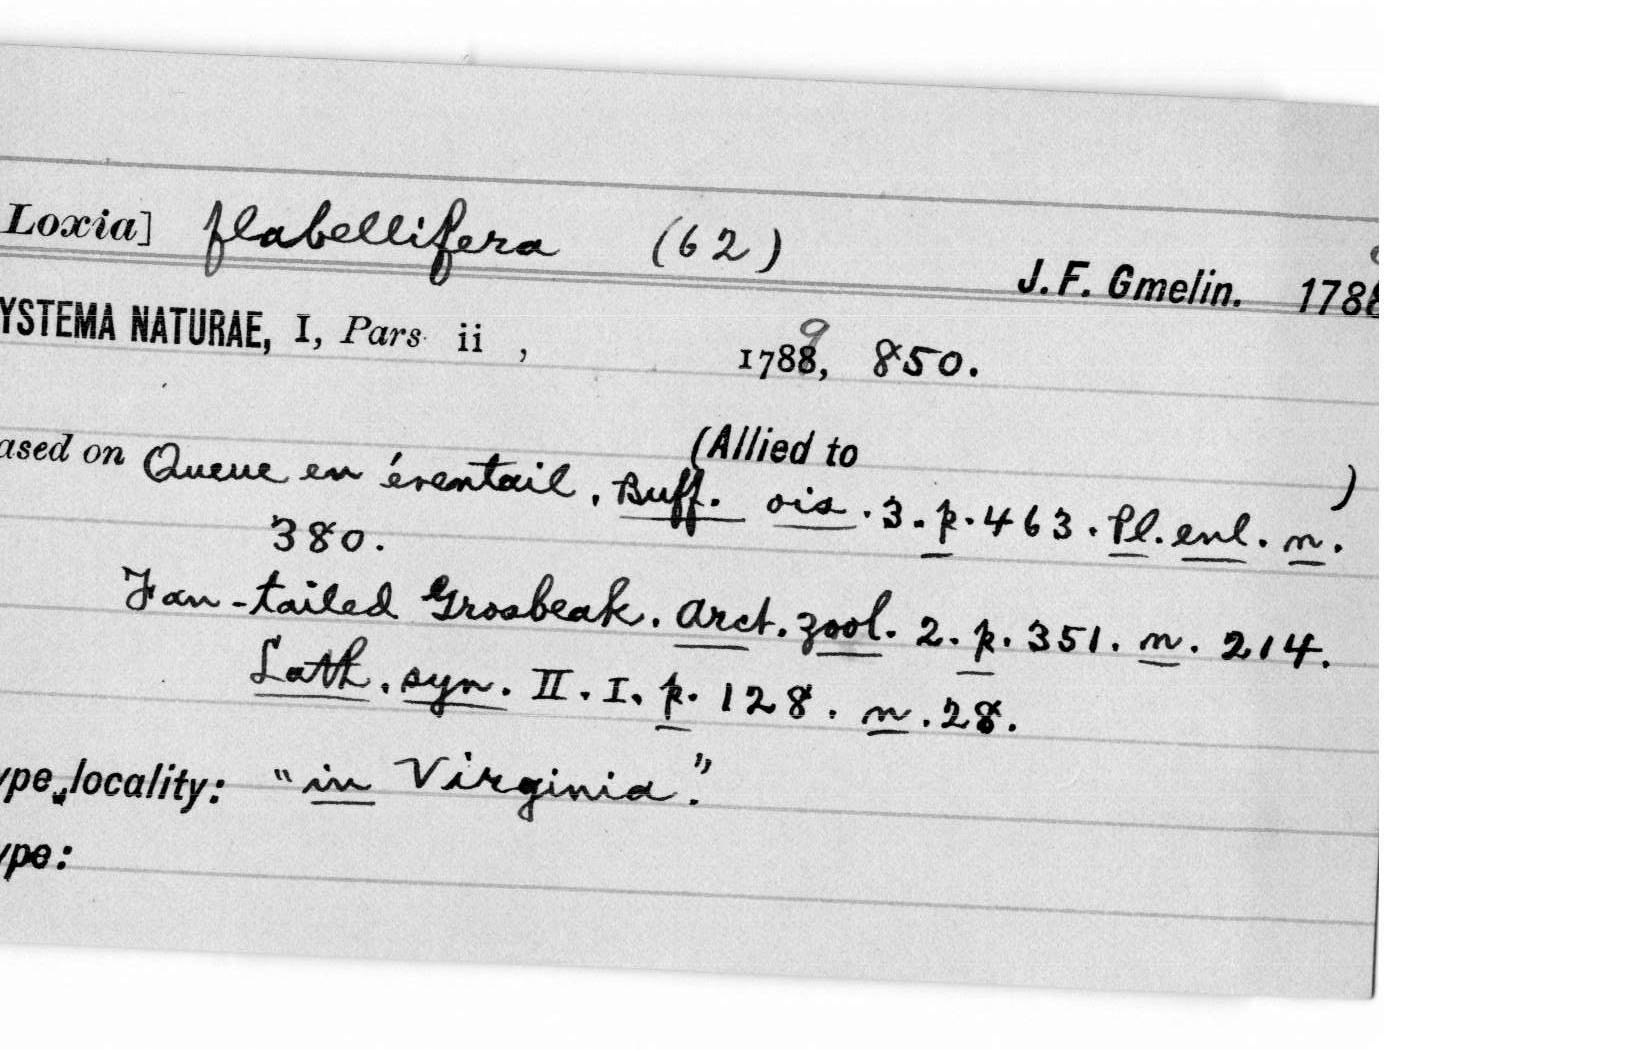 Loxia] flabellifera (62)
J. F. Gmelin. 1788
YSTEMA NATURAE, I, Pars ii , 1788, 9 850.
(Allied to )
ased on Queue en éventail, Buff. ois. 3. p. 463. Pl. enl. n.
380.
Fan-tailed Grosbeak. Arct. zool. 2. p. 351. n. 214.
Lath. syn. II. I. p. 128. n. 28.
ype locality: "in Virginia."
ype: